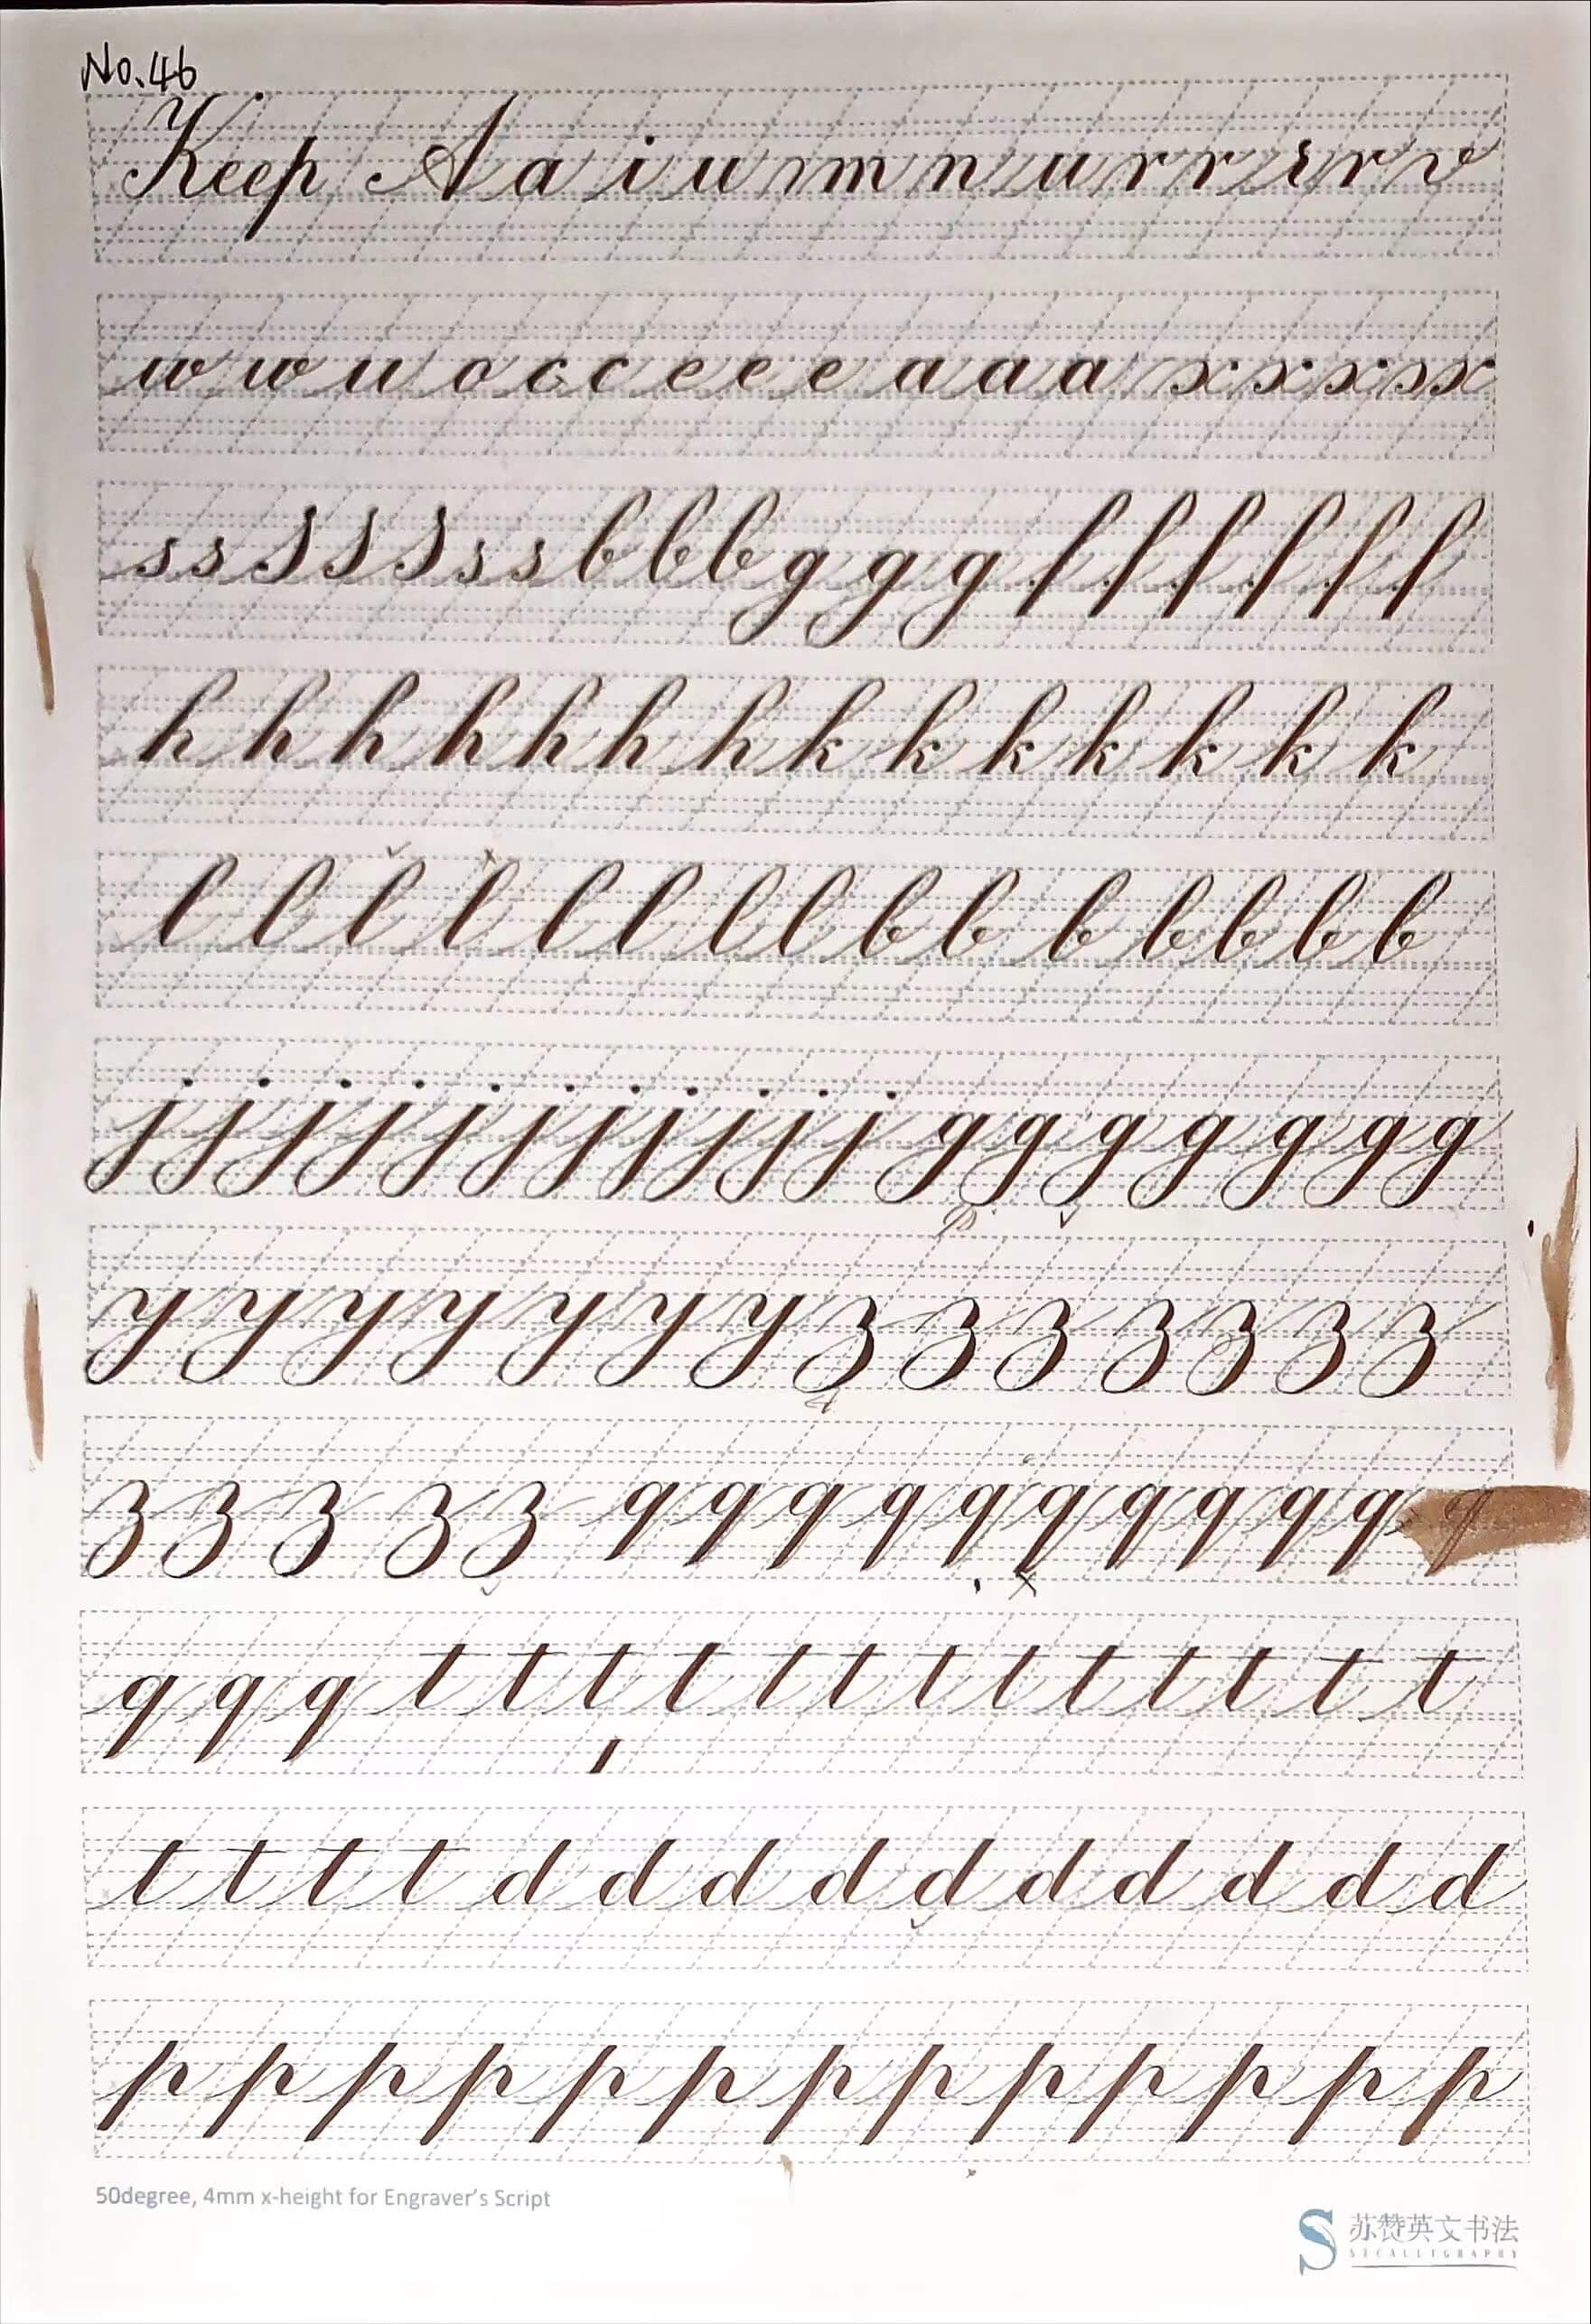 No.46
Keep A a i u m n u r r s r v
w w u o c c e e e a a a x x x x x
s s s s s s s b b b g g g f f f f f f
h h h h h h h k k k k k k k
l l l l l l l l b b b b b b b
j j j j j j j j j j g g g g g g g
y y y y y y y z z z z z z z
z z z z z q q q q q q q q q q q
q q q t t t t t t t t t t t t
t t t t d d d d d d d d d d
p p p p p p p p p p p p p
50degree, 4mm x-height for Engraver's Script
苏赞英文书法
SZCALLIGRAPHY